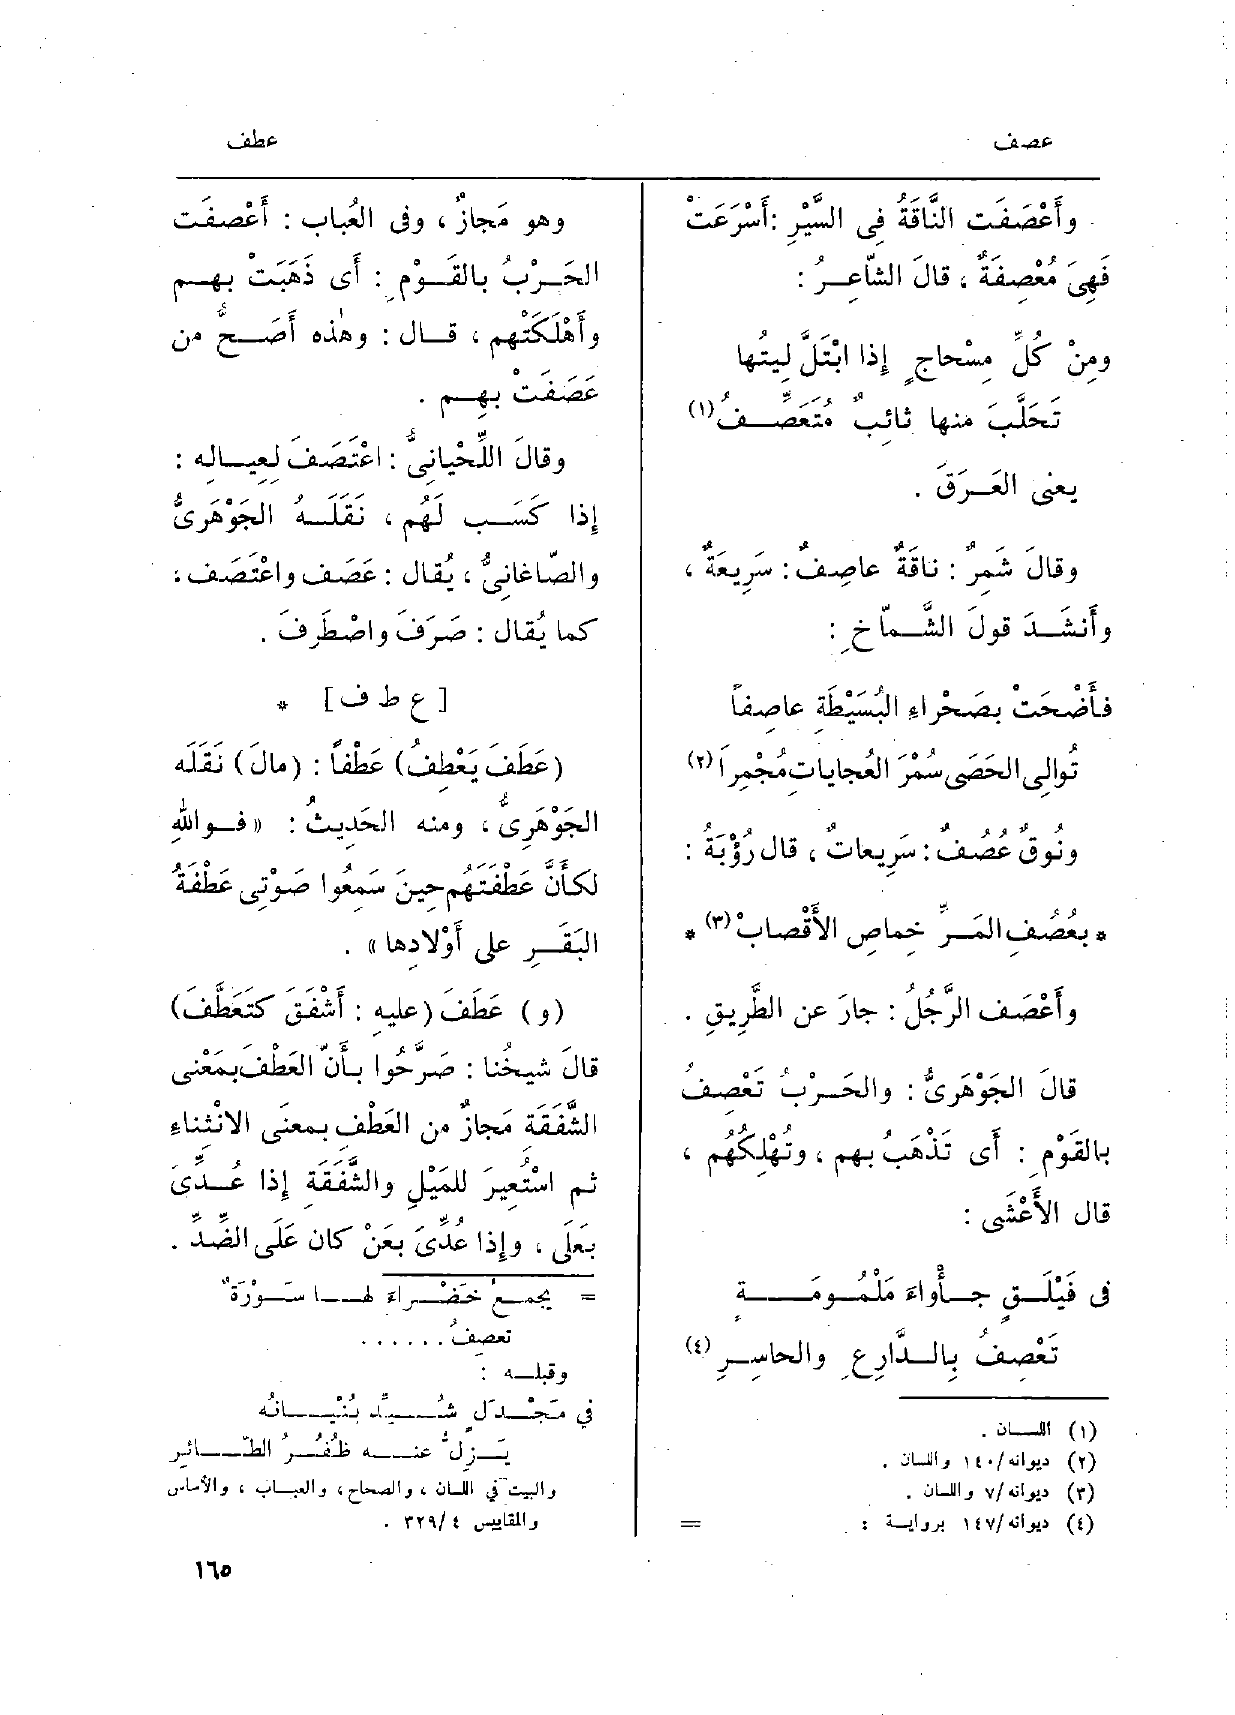 عصف
عطف
وأَعْصَفَت النَّاقَةُ فِى السَّيْرِ : أَسْرَعَتْ
فَهِىَ مُعْصِفَةٌ ، قالَ الشّاعِرُ :
ومِنْ كُلِّ مِسْحاجٍ إِذا ابْتَلَّ لِيتُها
تَحَلَّبَ منها ثائِبٌ مُتَعَصِّفُ (١)
يعنى العَرَقَ .
وقالَ شَمِرٌ : ناقَةٌ عاصِفٌ : سَرِيعَةٌ ،
وأَنشَدَ قولَ الشَّمّاخِ :
فأَضْحَتْ بصَحْراءِ البُسَيْطَةِ عاصِفاً
تُوالِى الحَصَى سُمْرَ العُجاياتِ مُجْمِرَا (٢)
ونُوقٌ عُصُفٌ : سَرِيعاتٌ ، قال رُؤْبَةُ :
* بعُصُفِ المَرِّ خِماصِ الأَقْصابْ (٣) *
وأَعْصَف الرَّجُلُ : جارَ عن الطَّرِيقِ .
قالَ الجَوْهَرِىُّ : والحَرْبُ تَعْصِفُ
بالقَوْمِ : أَى تَذْهَبُ بهم ، وتُهْلِكُهُم ،
قال الأَعْشَى :
فى فَيْلَقٍ جَأْواءَ مَلْمُومَةٍ
تَعْصِفُ بِالدَّارِعِ والحاسِرِ (٤)
(١) اللسان .
(٢) ديوانه/١٤٠ واللسان .
(٣) ديوانه/٧ واللسان .
(٤) ديوانه/١٤٧ برواية : =
وهو مَجازٌ ، وفى العُبابِ : أَعْصفَت
الحَرْبُ بالقَوْمِ : أَى ذَهَبَتْ بهِم
وأَهْلَكَتْهم ، قال : وهٰذه أَصَحُّ من
عَصَفَتْ بهِم .
وقالَ اللِّحْيانِىُّ : اعْتَصَفَ لعِيالِه :
إِذا كَسَب لَهُم ، نَقَلَهُ الجَوْهَرِىُّ
والصّاغانِىُّ ، يُقال : عَصَف واعْتَصَف ،
كما يُقال : صَرَفَ واصْطَرفَ .
[ ع ط ف ] *
(عَطَفَ يَعْطِفُ) عَطْفاً : (مالَ) نَقَلَه
الجَوْهَرِىُّ ، ومنه الحَدِيثُ : « فوالله
لكأَنَّ عَطْفَتَهُم حِينَ سَمِعُوا صَوْتِى عَطْفَةُ
البَقَرِ على أَوْلادِها » .
(و) عَطَفَ (عليهِ : أَشْفَقَ كتَعَطَّفَ)
قالَ شيخُنا : صَرَّحُوا بأَنّ العَطْفَ بمَعْنى
الشَّفَقَةِ مَجازٌ من العَطْفِ بمعنَى الانْثِناءِ
ثم اسْتُعِيرَ للمَيْلِ والشَّفَقَةِ إذا عُدِّىَ
بعَلَى ، وإذا عُدِّىَ بعَنْ كان عَلَى الضِّدِّ .
= يجمعُ خَضْراءَ لها سَوْرَةٌ
تعصِفُ . . . . . .
وقبله :
في مَجْدَلٍ شُيِّدَ بُنْيانُه
يَزِلُّ عنه ظُفُرُ الطّائِرِ
والبيت في اللسان ، والصحاح ، والعباب ، والأساس
والمقاييس ٤/ ٣٢٩ .
١٦٥